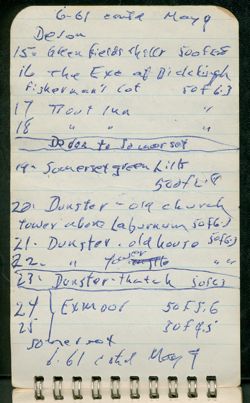 6-61 contd May 9
Devon
15- Green fields & hills 50 of 6.3
16 the Exe at Bickleigh
Fisherman's Cot 50 f 6.3
17 Trout Inn "
18 " " "
Devon to Somerset
19- Somerset green hills
50 of 6.3
20- Dunster - old church
tower above Laburnum 50 f 6.3
21- Dunster - old house 50 f 6.3
22- " " "
23- Dunster - thatch 50 f 6.3
24 } Exmoor 50 f 5.6
25 } 50 f 4.5
Somerset
6-61 contd May 9